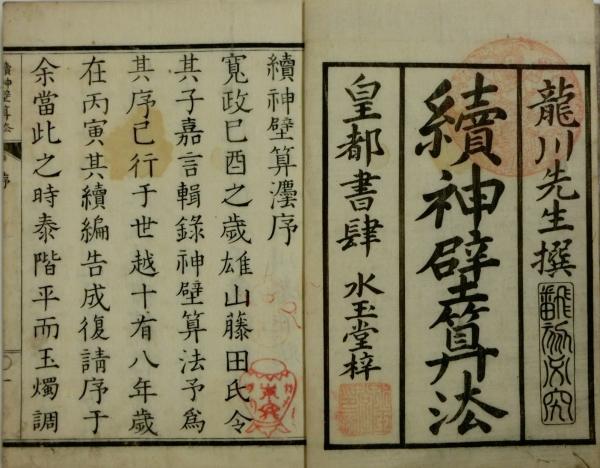 龍川先生撰
續神壁算法
皇都書肆 水玉堂梓
續神壁算灋序
寬政己酉之歲雄山藤田氏令
其子嘉言輯錄神壁算法予爲
其序已行于世越十有八年歲
在丙寅其續編告成復請序于
余當此之時泰階平而玉燭調